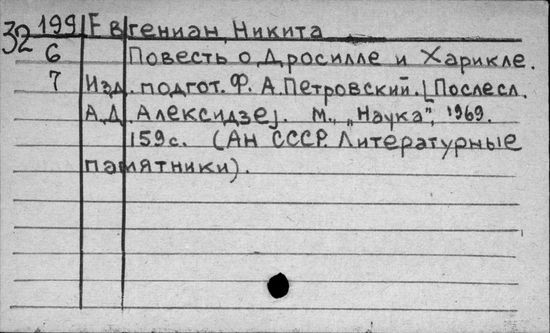 32 199 Евгениан, Никита
6 Повесть о Дросилле и Харикле.
7 Изд. подгот. Ф. А. Петровский. [Послесл.
А.Д. Алексидзе]. М., „Наука", 1969.
159с. (АН СССР. Литературные
памятники).